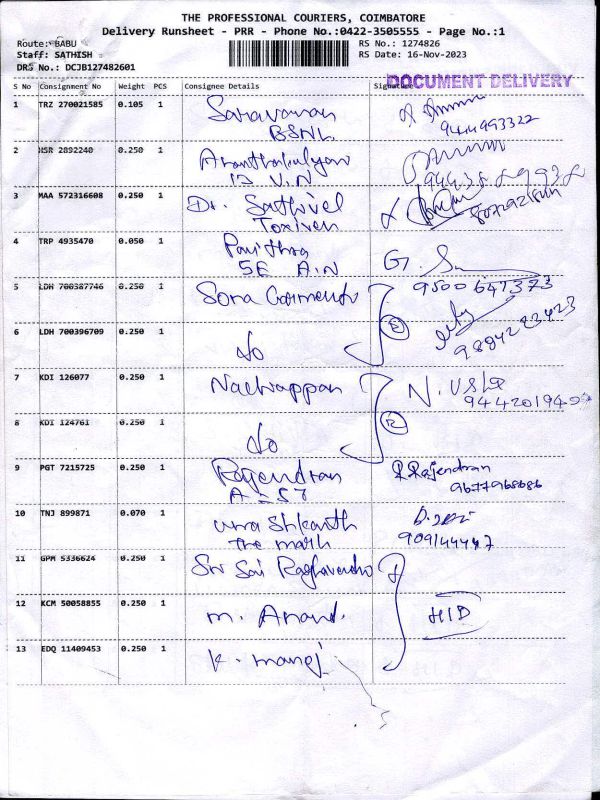 THE PROFESSIONAL COURIERS, COIMBATORE
Delivery Runsheet - PRR - Phone No.:0422-3505555 - Page No.:1
Route: BABU
RS No.: 1274826
Staff: SATHISH
RS Date: 16-Nov-2023
DRS No.: DCJB127482601
DOCUMENT DELIVERY
S No Consignment No Weight PCS Consignee Details Signature
1 TRZ 270021585 0.105 1 Saravanan
BSNL
9444993322
2 HSR 2892240 0.250 1
13 V.N
3 MAA 572316608 0.250 1 Dr. Sathivel
4 TRP 4935470 0.050 1 Pavithra
5E A.N
G.
9500647373
5 LDH 700387746 0.250 1 Sona Garments
6 LDH 700396709 0.250 1 do
9894283423
7 KDI 126077 0.250 1 Nachiappan N. Usha
8 KDI 124761 0.250 1 do
9 PGT 7215725 0.250 1 Rajendran R Rajendran
9677968686
10 TNJ 899871 0.070 1
The mark
11 GPM 5336624 0.250 1 Sri Sai Raghavendra
12 KCM 50058855 0.250 1 M. Anand. HID
13 EDQ 11409453 0.250 1 K. Manoj